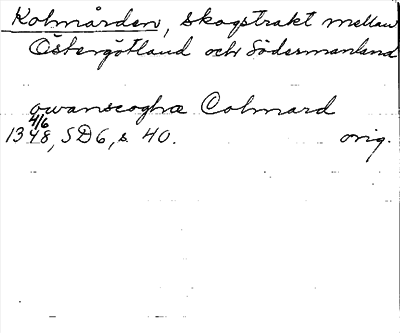 Kolmården, skogstrakt mellan
Östergötland och Södermanland
owanscoghæ Colmard
4/6
1348, SD6, s 40. orig.